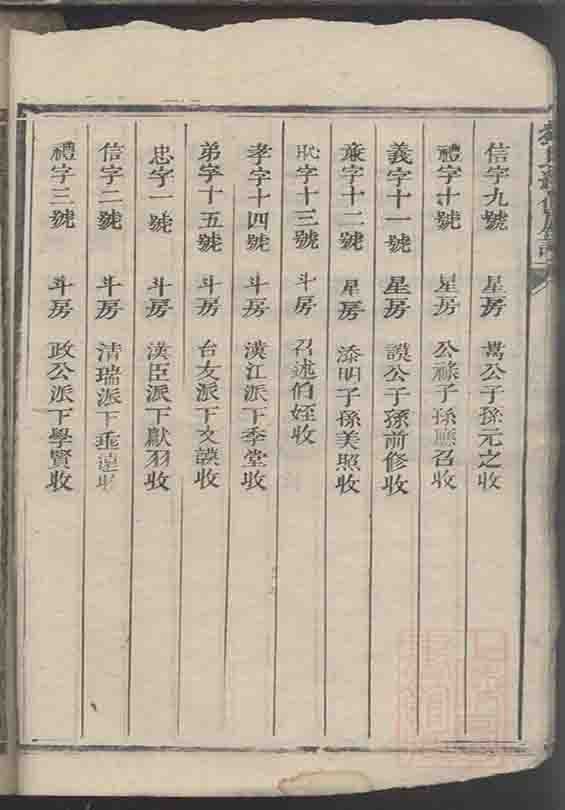 信字九號 星房 萬公子孫元之收
禮字十號 星房 公祿子孫應召收
義字十一號 星房 謨公子孫前修收
亷字十二號 星房 添明子孫美照收
恥字十三號 斗房 召述伯姪收
孝字十四號 斗房 漢江派下季堂收
弟字十五號 斗房 台友派下文謨收
忠字一號 斗房 漢臣派下獻羽收
信字二號 斗房 清瑞派下遠收
禮字三號 斗房 政公派下學賢收